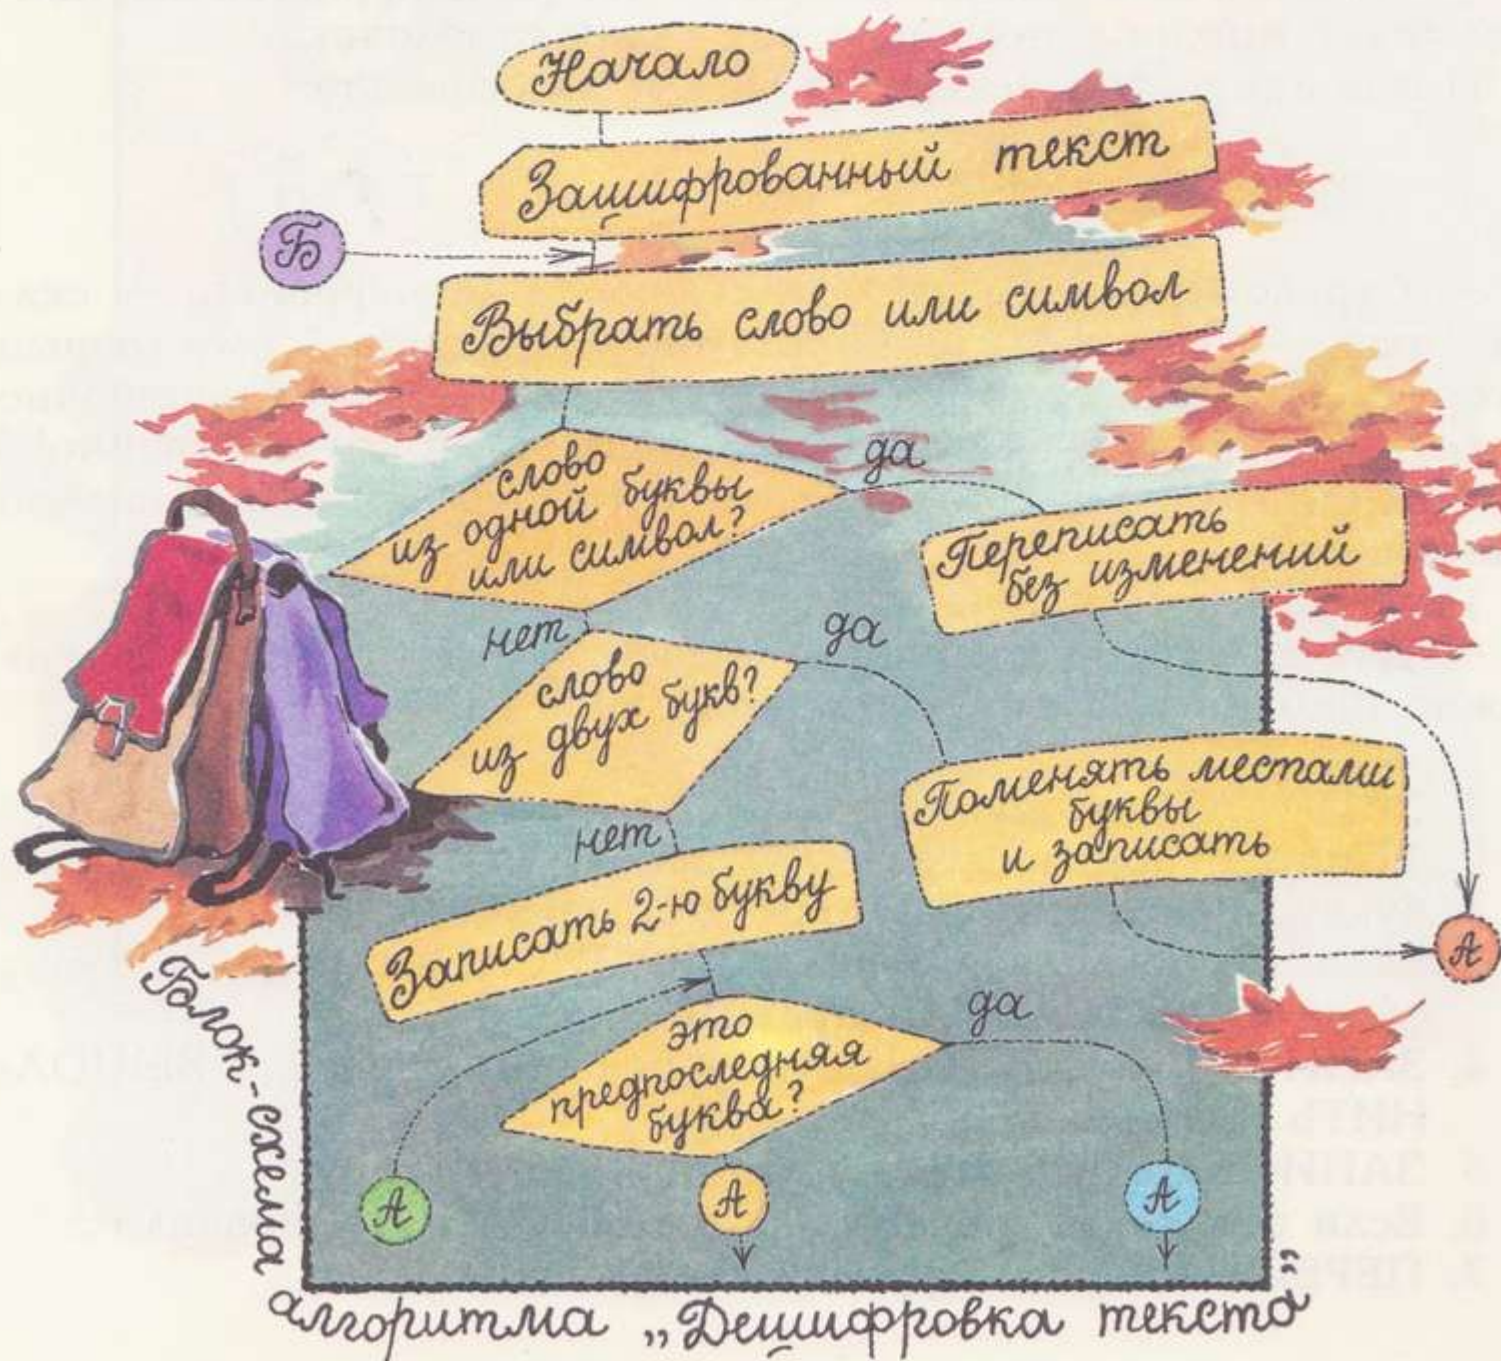 Начало
Зашифрованный текст
Б
Выбрать слово или символ
слово
из одной буквы
или символ?
да
Переписать
без изменений
нет
слово
из двух букв?
да
Поменять местами
буквы
и записать
нет
Записать 2-ю букву
А
это
предпоследняя
буква?
да
А
А
А
Блок-схема алгоритма „Дешифровка текста”